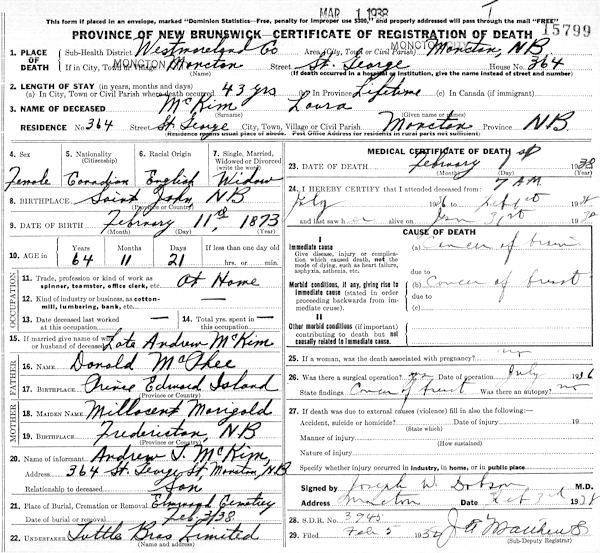 MAR 1 1938
This form if placed in an envelope, marked "Dominion Statistics—Free, penalty for improper use $300," and properly addressed will pass through the mail "FREE"
15799
PROVINCE OF NEW BRUNSWICK—CERTIFICATE OF REGISTRATION OF DEATH
1. PLACE OF DEATH
Sub-Health District Westmoreland Co Area (City, Town or Civil Parish) Moncton, NB
MONCTON CITY
If in City, Town or Village Moncton Street St. George House No. 364
MONCTON
(Name) (If death occurred in a hospital or institution, give the name instead of street and number)
2. LENGTH OF STAY (in years, months and days)
(a) In City, Town or Civil Parish where death occurred 43 yrs (b) In Province Lifetime (c) In Canada (if immigrant)
3. NAME OF DECEASED McKim Laura
(Surname) (Given name or names)
RESIDENCE No 364 Street St George City, Town, Village or Civil Parish Moncton Province N.B.
(Residence means usual place of abode. Post Office Address for residents in rural parts not sufficient)
4. Sex
5. Nationality (Citizenship)
6. Racial Origin
7. Single, Married, Widowed or Divorced (write the word)
Female Canadian English Widow
8. BIRTHPLACE Saint John, N.B
(Province or Country)
9. DATE OF BIRTH February 11, 1873
(Month) (Day) (Year)
10. AGE Years Months Days If less than one day
64 11 21 hrs. or min.
OCCUPATION
11. Trade, profession or kind of work as spinner, teamster, office clerk, etc. At Home
12. Kind of industry or business, as cotton-mill, lumbering, bank, etc.
13. Date deceased last worked at this occupation
14. Total yrs. spent in this occupation
15. If married give name of wife or husband of deceased Late Andrew McKim
FATHER
16. NAME Donald McPhee
17. BIRTHPLACE Prince Edward Island
(Province or Country)
MOTHER
18. MAIDEN NAME Millocent Marigold
19. BIRTHPLACE Fredericton, N.B
(Province or Country)
20. Name of informant Andrew J. McKim
Address 364 St. George St, Moncton, N.B
Relationship to deceased Son
21. Place of Burial, Cremation or Removal Elmwood Cemetery
Date of burial or removal Feb, 3/38.
22. UNDERTAKER Tuttle Bros Limited
(Name and address)
MEDICAL CERTIFICATE OF DEATH
23. DATE OF DEATH February 1st 1938
(Month) (Day) (Year)
7 AM
24. I HEREBY CERTIFY that I attended deceased from:
July 1936 to Feb 1st 1938
and last saw her alive on Jan 31st 1938
CAUSE OF DEATH
I
Immediate cause
Give disease, injury or complication which caused death, not the mode of dying, such as heart failure, asphyxia, asthenia, etc.
(a) Cancer of brain
due to
Morbid conditions, if any, giving rise to immediate cause (stated in order proceeding backwards from immediate).
(b) Cancer of breast
due to
(c)
II
Other morbid conditions (if important) contributing to death but not causally related to immediate cause.
25. If a woman, was the death associated with pregnancy? no
26. Was there a surgical operation? yes Date of operation July 1936
State findings Cancer of breast Was there an autopsy? no
27. If death was due to external causes (violence) fill in also the following:—
Accident, suicide or homicide? Date of injury
(State which)
Manner of injury
(How sustained)
Nature of injury
Specify whether injury occurred in industry, in home, or in public place
Signed by Joseph W. Dobson M.D.
Address Moncton Date Feb 3rd 1938
28. S.D.R. No. 3945
29. Filed Feb 5 J A Matthews
(Sub-Deputy Registrar)